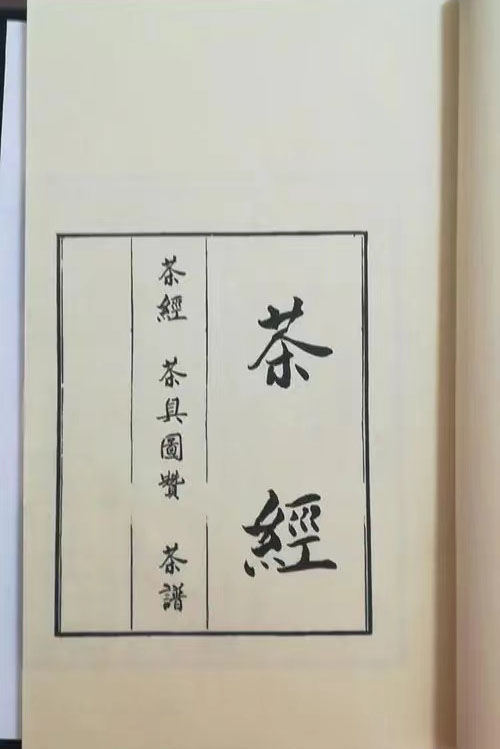 茶經
茶經 茶具圖贊 茶譜